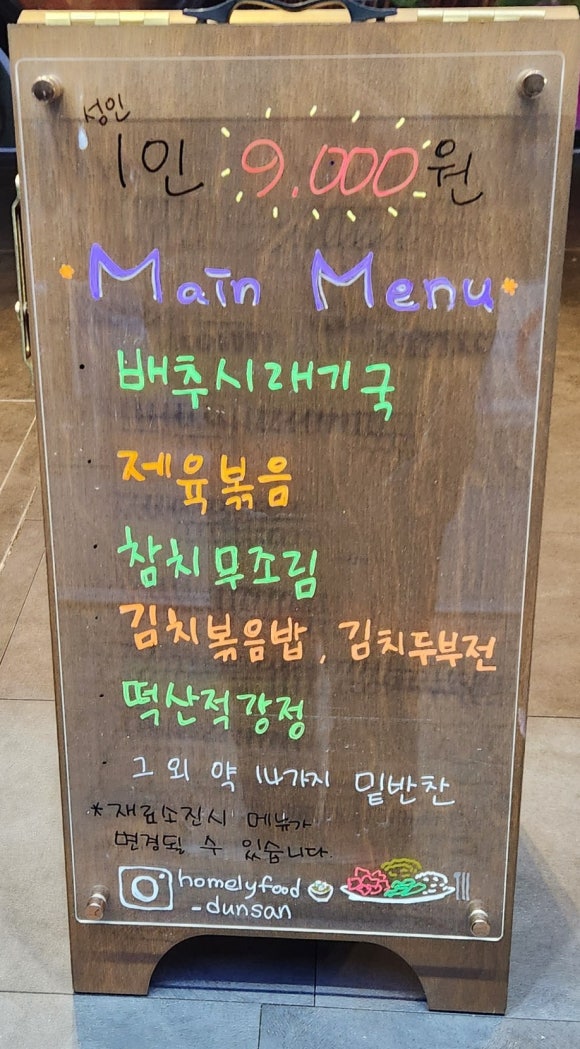 성인
1인 9.000원
Main Menu
· 배추시래기국
· 제육볶음
· 참치무조림
· 김치볶음밥, 김치두부전
· 떡산적강정
그 외 약 14가지 밑반찬
*재료소진시 메뉴가
변경될 수 있습니다.
homelyfood
-dunsan